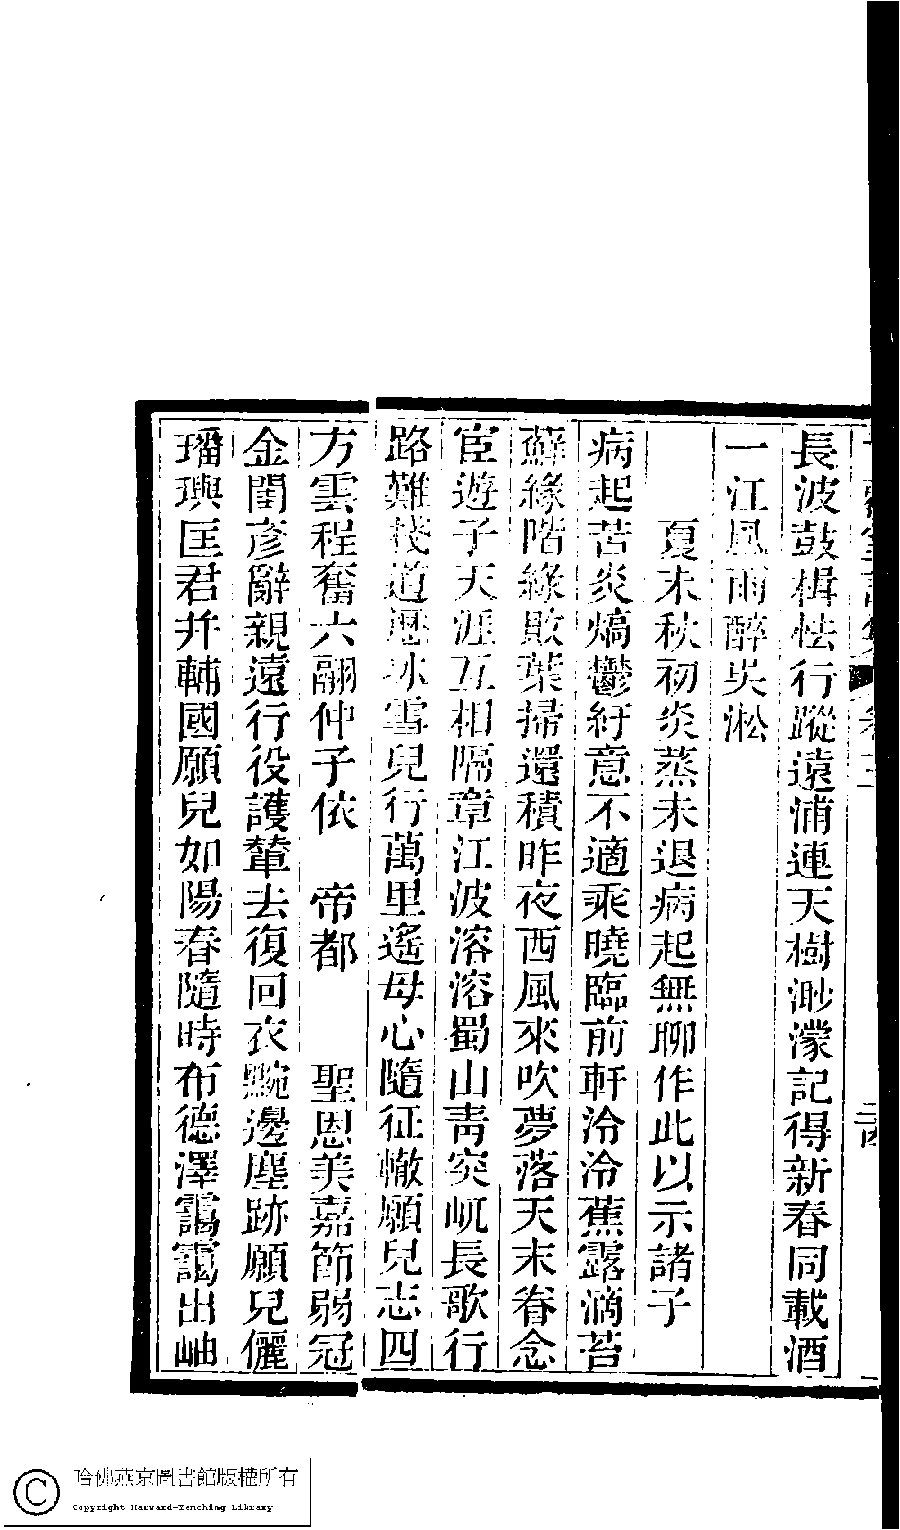 長波鼓楫怯行蹤遠浦連天樹渺濛記得新春同載酒
一江風雨醉吳淞
夏末秋初炎蒸未退病起無聊作此以示諸子
病起苦炎熇鬱紆意不適乘曉臨前軒泠泠蕉露滴苔
蘚緣階綠敗葉掃還積昨夜西風來吹夢落天末眷念
宦遊子天涯互相隔章江波溶溶蜀山靑突屼長歌行
路難棧道歷冰雪兒行萬里遙母心隨征轍願兒志四
方雲程奮六翮仲子依 帝都 聖恩美嘉節弱冠
金閨彥辭親遠行役護輦去復回衣黦邊塵跡願兒儷
璠璵匡君并輔國願兒如陽春隨時布德澤靄靄出岫
哈佛燕京圖書館版權所有
Copyright Harvard-Yenching Library